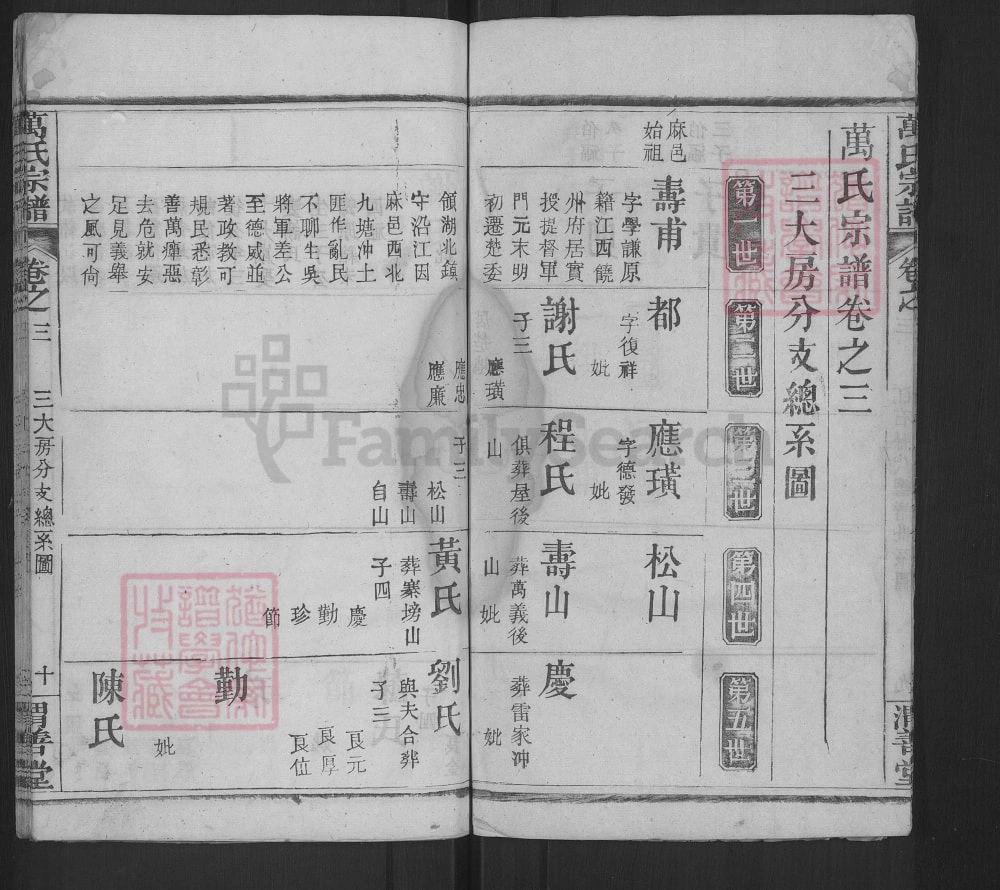 萬氏宗譜卷之三
三大房分支總系圖
第一世
麻邑始祖
壽甫
字學謙原
籍江西饒
州府居實
授提督軍
門元末明
初遷楚委
領湖北鎮
守沿江因
麻邑西北
九塘冲土
匪作亂民
不聊生吳
將軍差公
至德威並
著政教可
規民悉彰
善萬瘴惡
去危就安
足見義舉
之風可尙
第二世
都
字復祥
妣
謝氏
子三
應璜
應忠
應廉
第三世
應璜
字德發
妣
程氏
俱葬屋後
山
子三
松山
壽山
自山
第四世
松山
壽山
葬萬義後
山
妣
黃氏
葬寨塝山
子四
慶
勤
珍
節
第五世
慶
葬雷家冲
妣
劉氏
與夫合葬
子三
良元
良厚
良位
勤
妣
陳氏
萬氏宗譜
卷之三
三大房分支總系圖
十
渭善堂
萬氏宗譜
卷之
渭善堂
FamilySearch